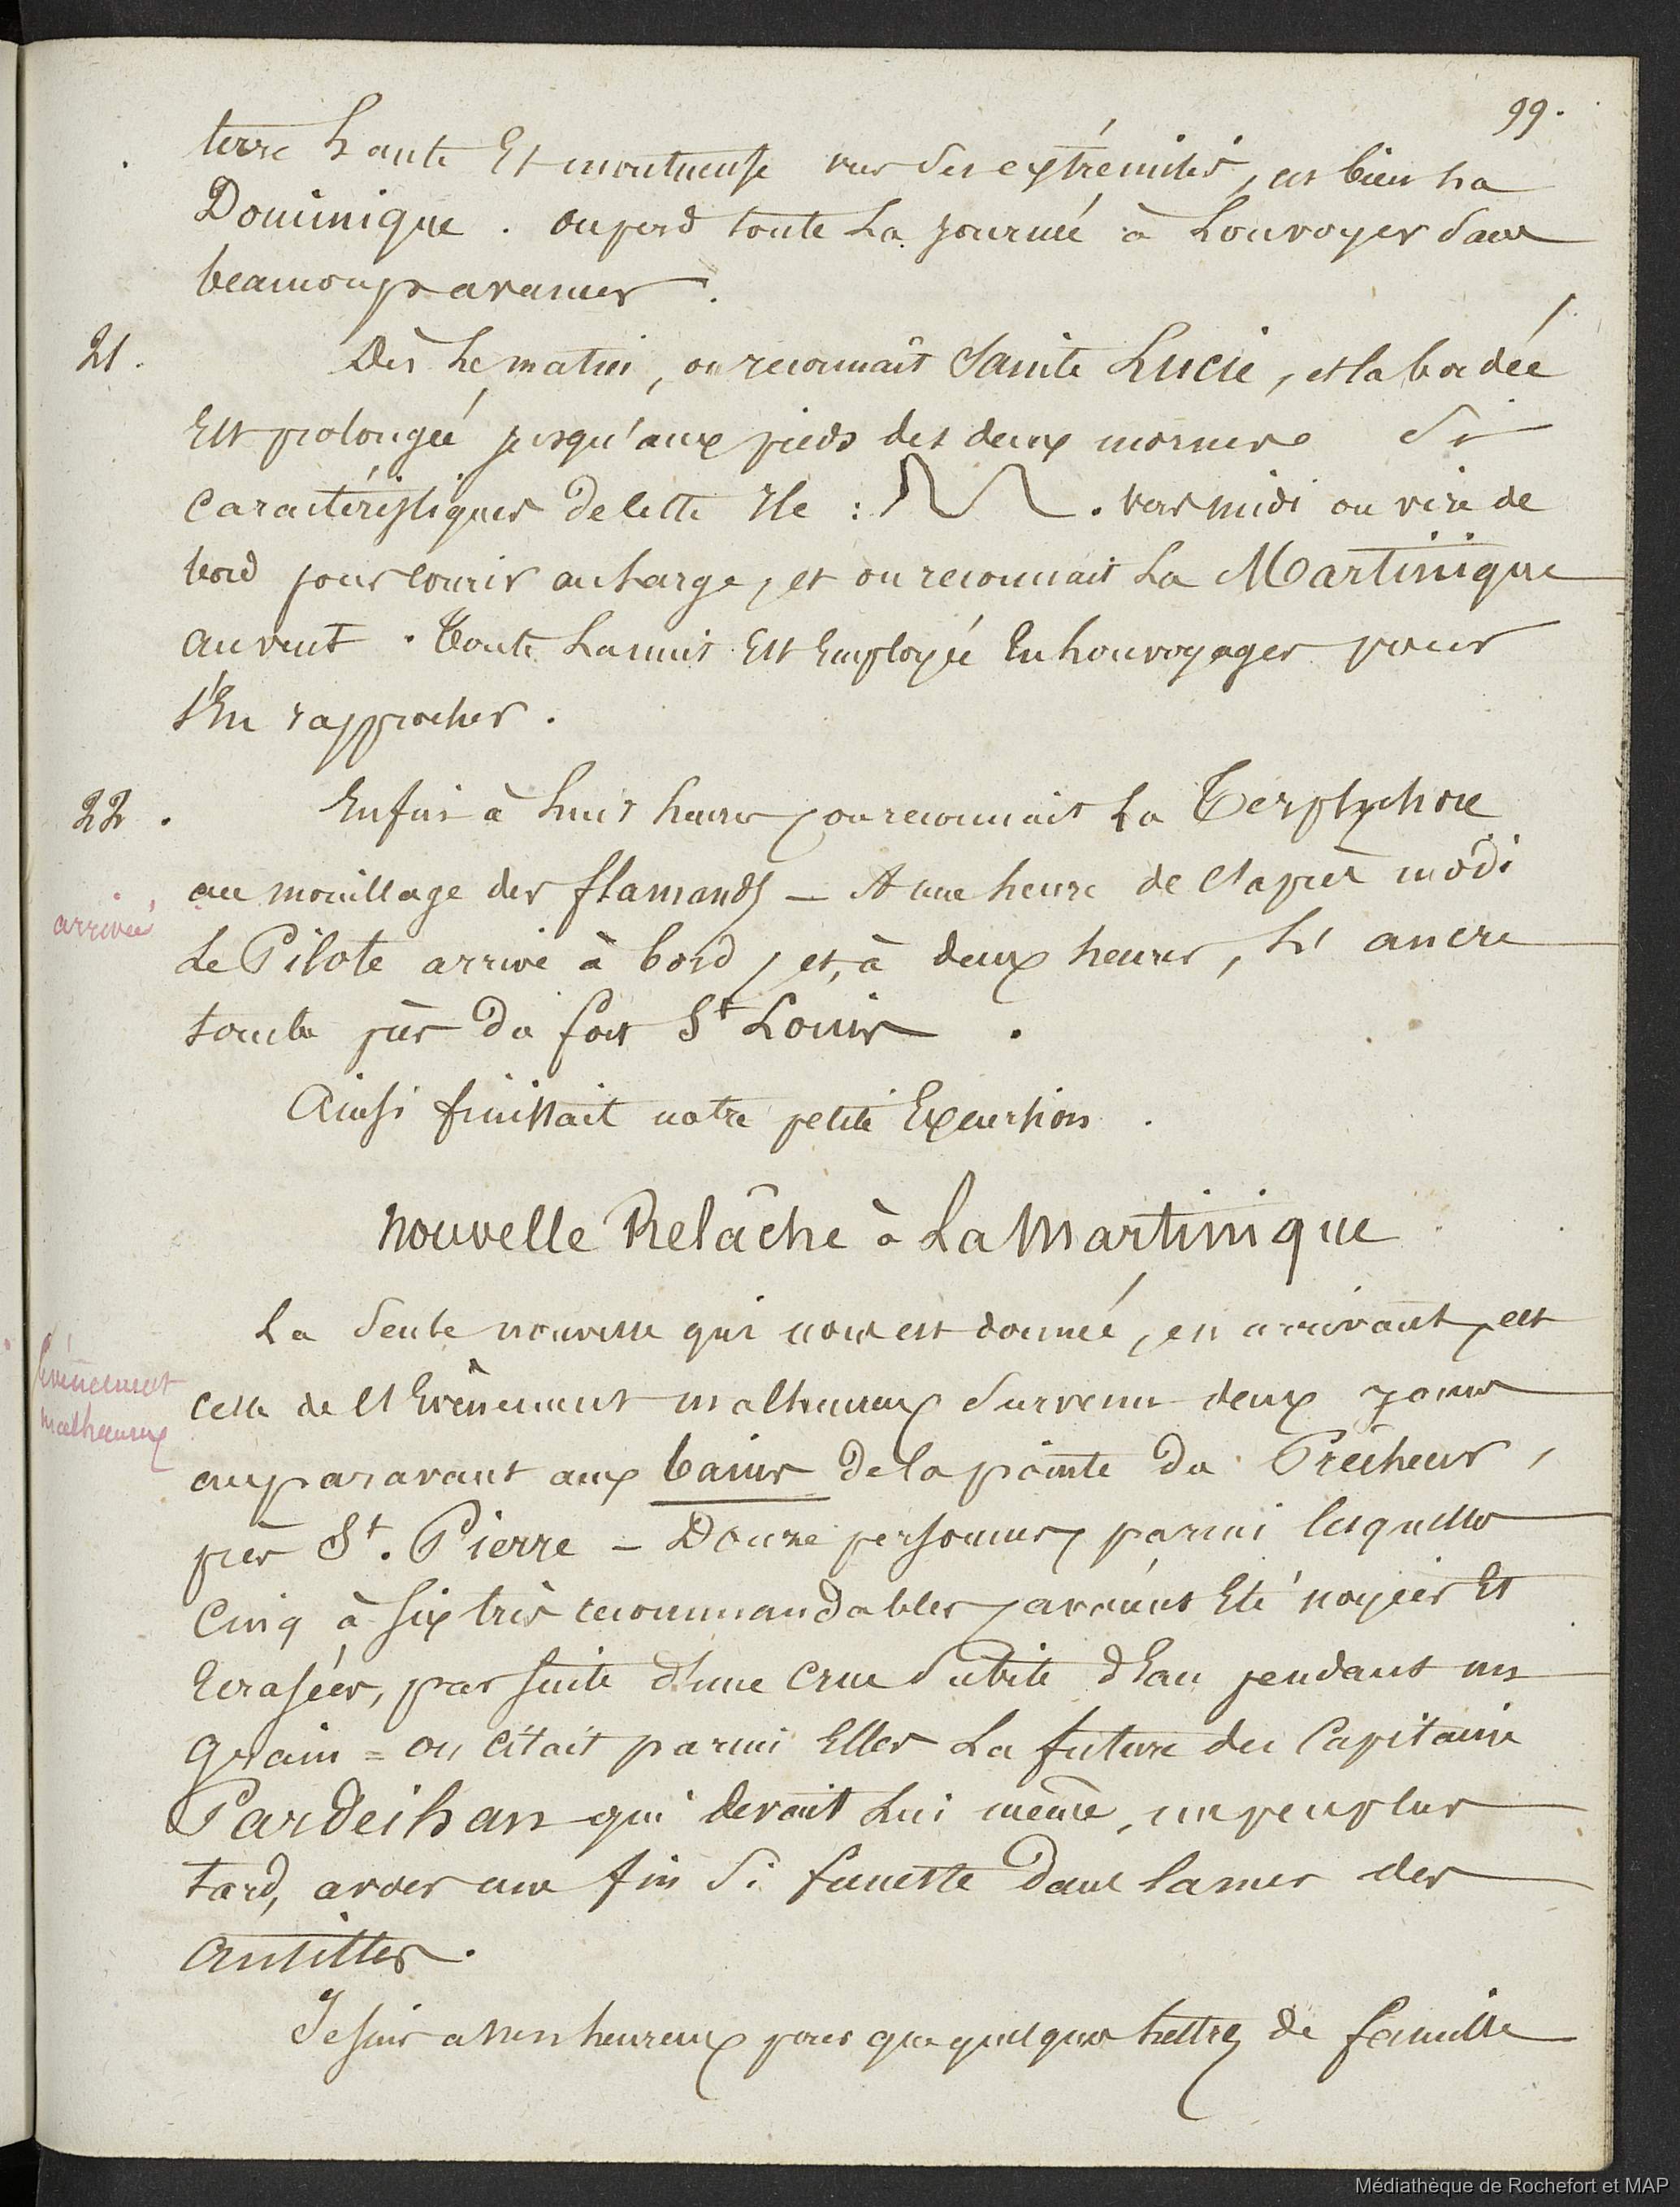 99.
terre haute Et montueuse vers ses extrémités, est bien La
Dominique. on perd toute La journée à Louvoyer sans
beaucoup avancer.
21. Dès Le matin, on reconnaît Sainte Lucie, et la bordée
Est prolongée jusqu'aux pieds des deux mornes si
caractéristiques de cette Ile : . vers midi on vire de
bord pour courir au Large, et on reconnait La Martinique
au vent. Toute La nuit Est Employée En Louvoyages pour
s'En rapprocher.
22. Enfin à huit heures, on reconnait La Terpsychore
au mouillage des flamands — A une heure de l'après midi
arrivée
Le Pilote arrive à bord, et, à deux heures, L'ancre
tombe près du fort St Louis.
Ainsi finissait notre petite Excursion.
Nouvelle Relâche à La Martinique
La seule nouvelle qui nous est donnée, en arrivant, est
Evènement
malheureux
celle de l'Evènement malheureux survenu deux jours
auparavant aux bains de la pointe du Prêcheur,
près St. Pierre — Douze personnes, parmi lesquelles
Cinq à six très recommandables, avaient Eté noyées Et
Ecrasées, par suite d'une crue subite d'Eau pendant un
grain = on citait parmi Elles La future du Capitaine
Pardeihan qui devait Lui même, un peu plus
tard, avoir une fin si funeste dans la mer des
Antilles.
Je suis assez heureux pour que quelques Lettres de famille